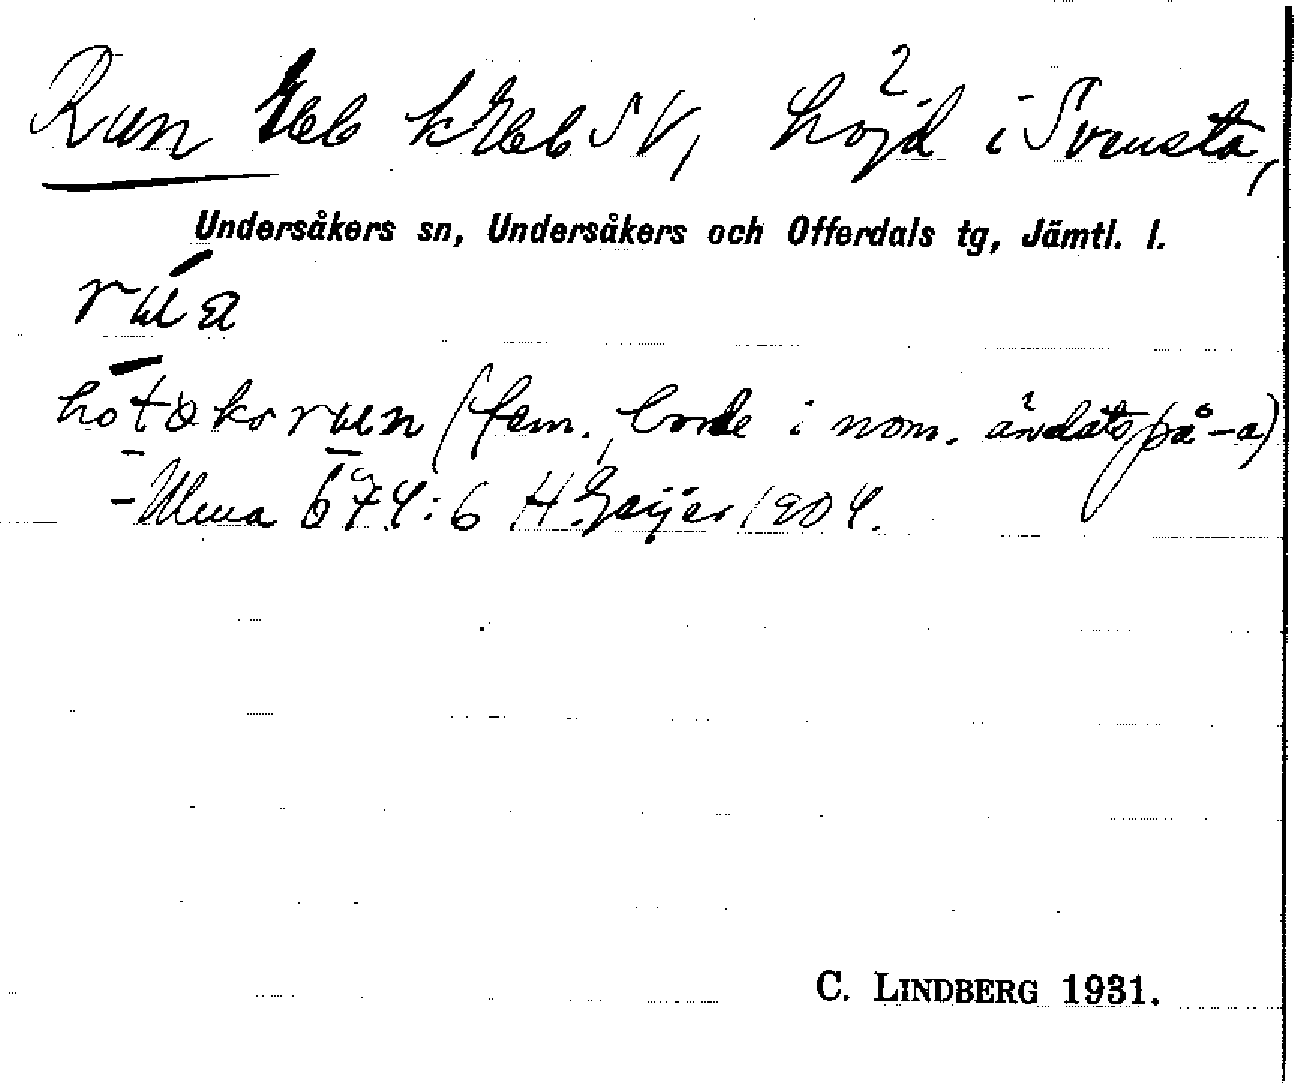 Run Ebb k Ebb SV, höjd i Svensta,
Undersåkers sn, Undersåkers och Offerdals tg, Jämtl. l.
hotakoruen (fem., borde i nom. ändats på -a)
674:6 H. Geijer 1904.
C. LINDBERG 1931.